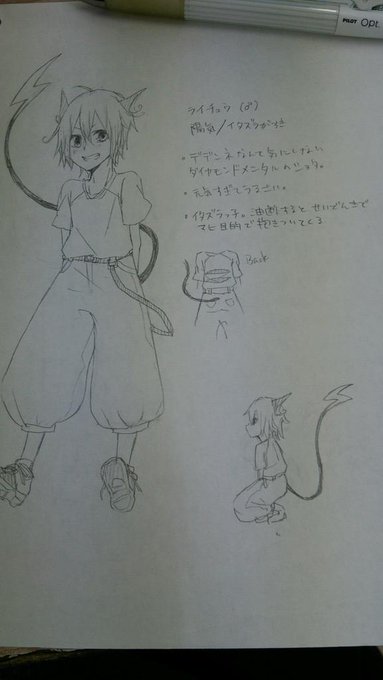 PILOT Opt.
ライチュウ (♂)
陽気/イタズラがすき
・デデンネなんて気にしない
ダイヤモンドメンタルのショタ。
・元気すぎてうるさい。
・イタズラっ子。油断すると せいでんきで
マヒ目的で抱きついてくる
Back